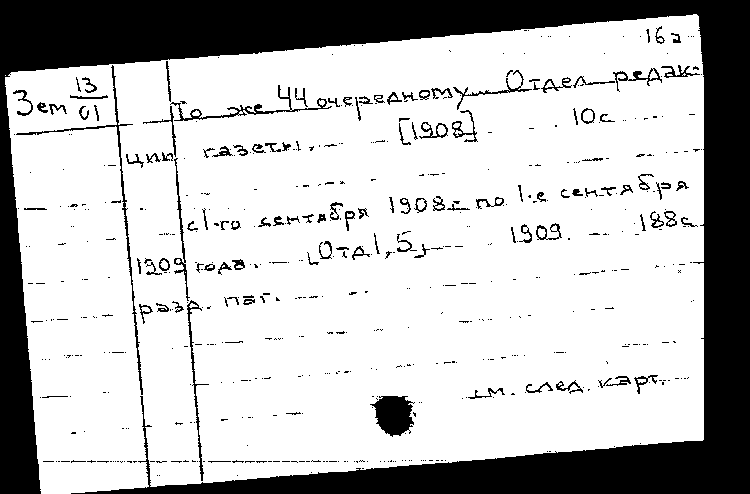 16а
Зем 13/01
То же 44 очередному. Отдел редак-
ции газеты. [1908] 10с
с 1-го сентября 1908г по 1-е сентября
1909 года. [Отд 1, 5] 1909. 188с
разд. паг.
см. след. карт.